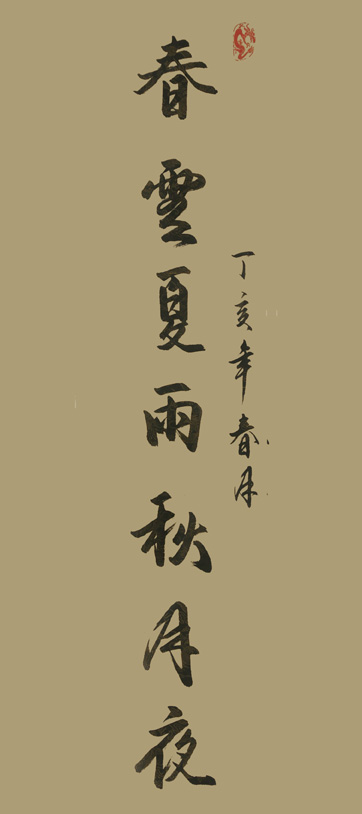 丁亥年春月
春雲夏雨秋月夜